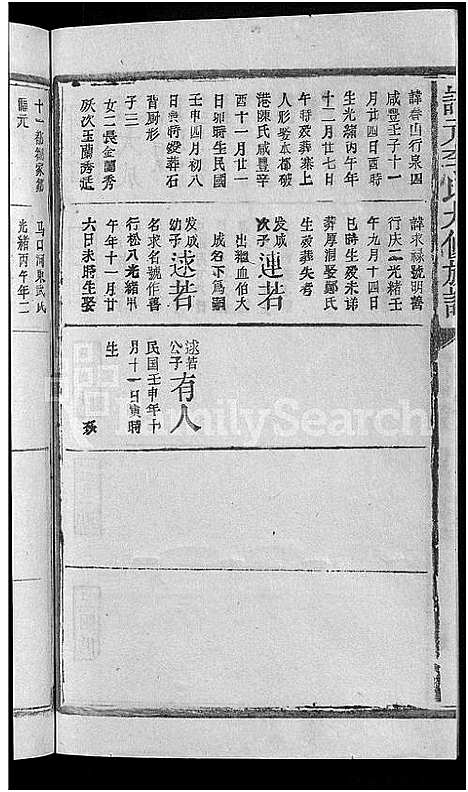 諱春山行泉四
咸豐壬子十一
月廿四日酉時
生光緒丙午年
十二月廿七日
午時歿葬寨上
人形
港陳氏咸豐辛
酉十一月廿一
日卯時生民國
壬申四月初八
日寅時歿葬石
背厨形
子三
女二長金蘭秀
次玉蘭秀适
諱求祿號明善
行庆二光緒壬
午年九月十四日
巳時生歿未详
葬厚洞娶鄭氏
生歿葬失考
发咸
次子 連若
出繼血伯大
咸名下爲嗣
发咸
幼子 逑若
名求名號作善
行松八光緒甲
午年十一月廿
六日未時生娶
逑若
公子 有人
民国壬申年十
月十一日寅時
生
十一
馬口洞東武氏
光緒丙午年二
FamilySearch